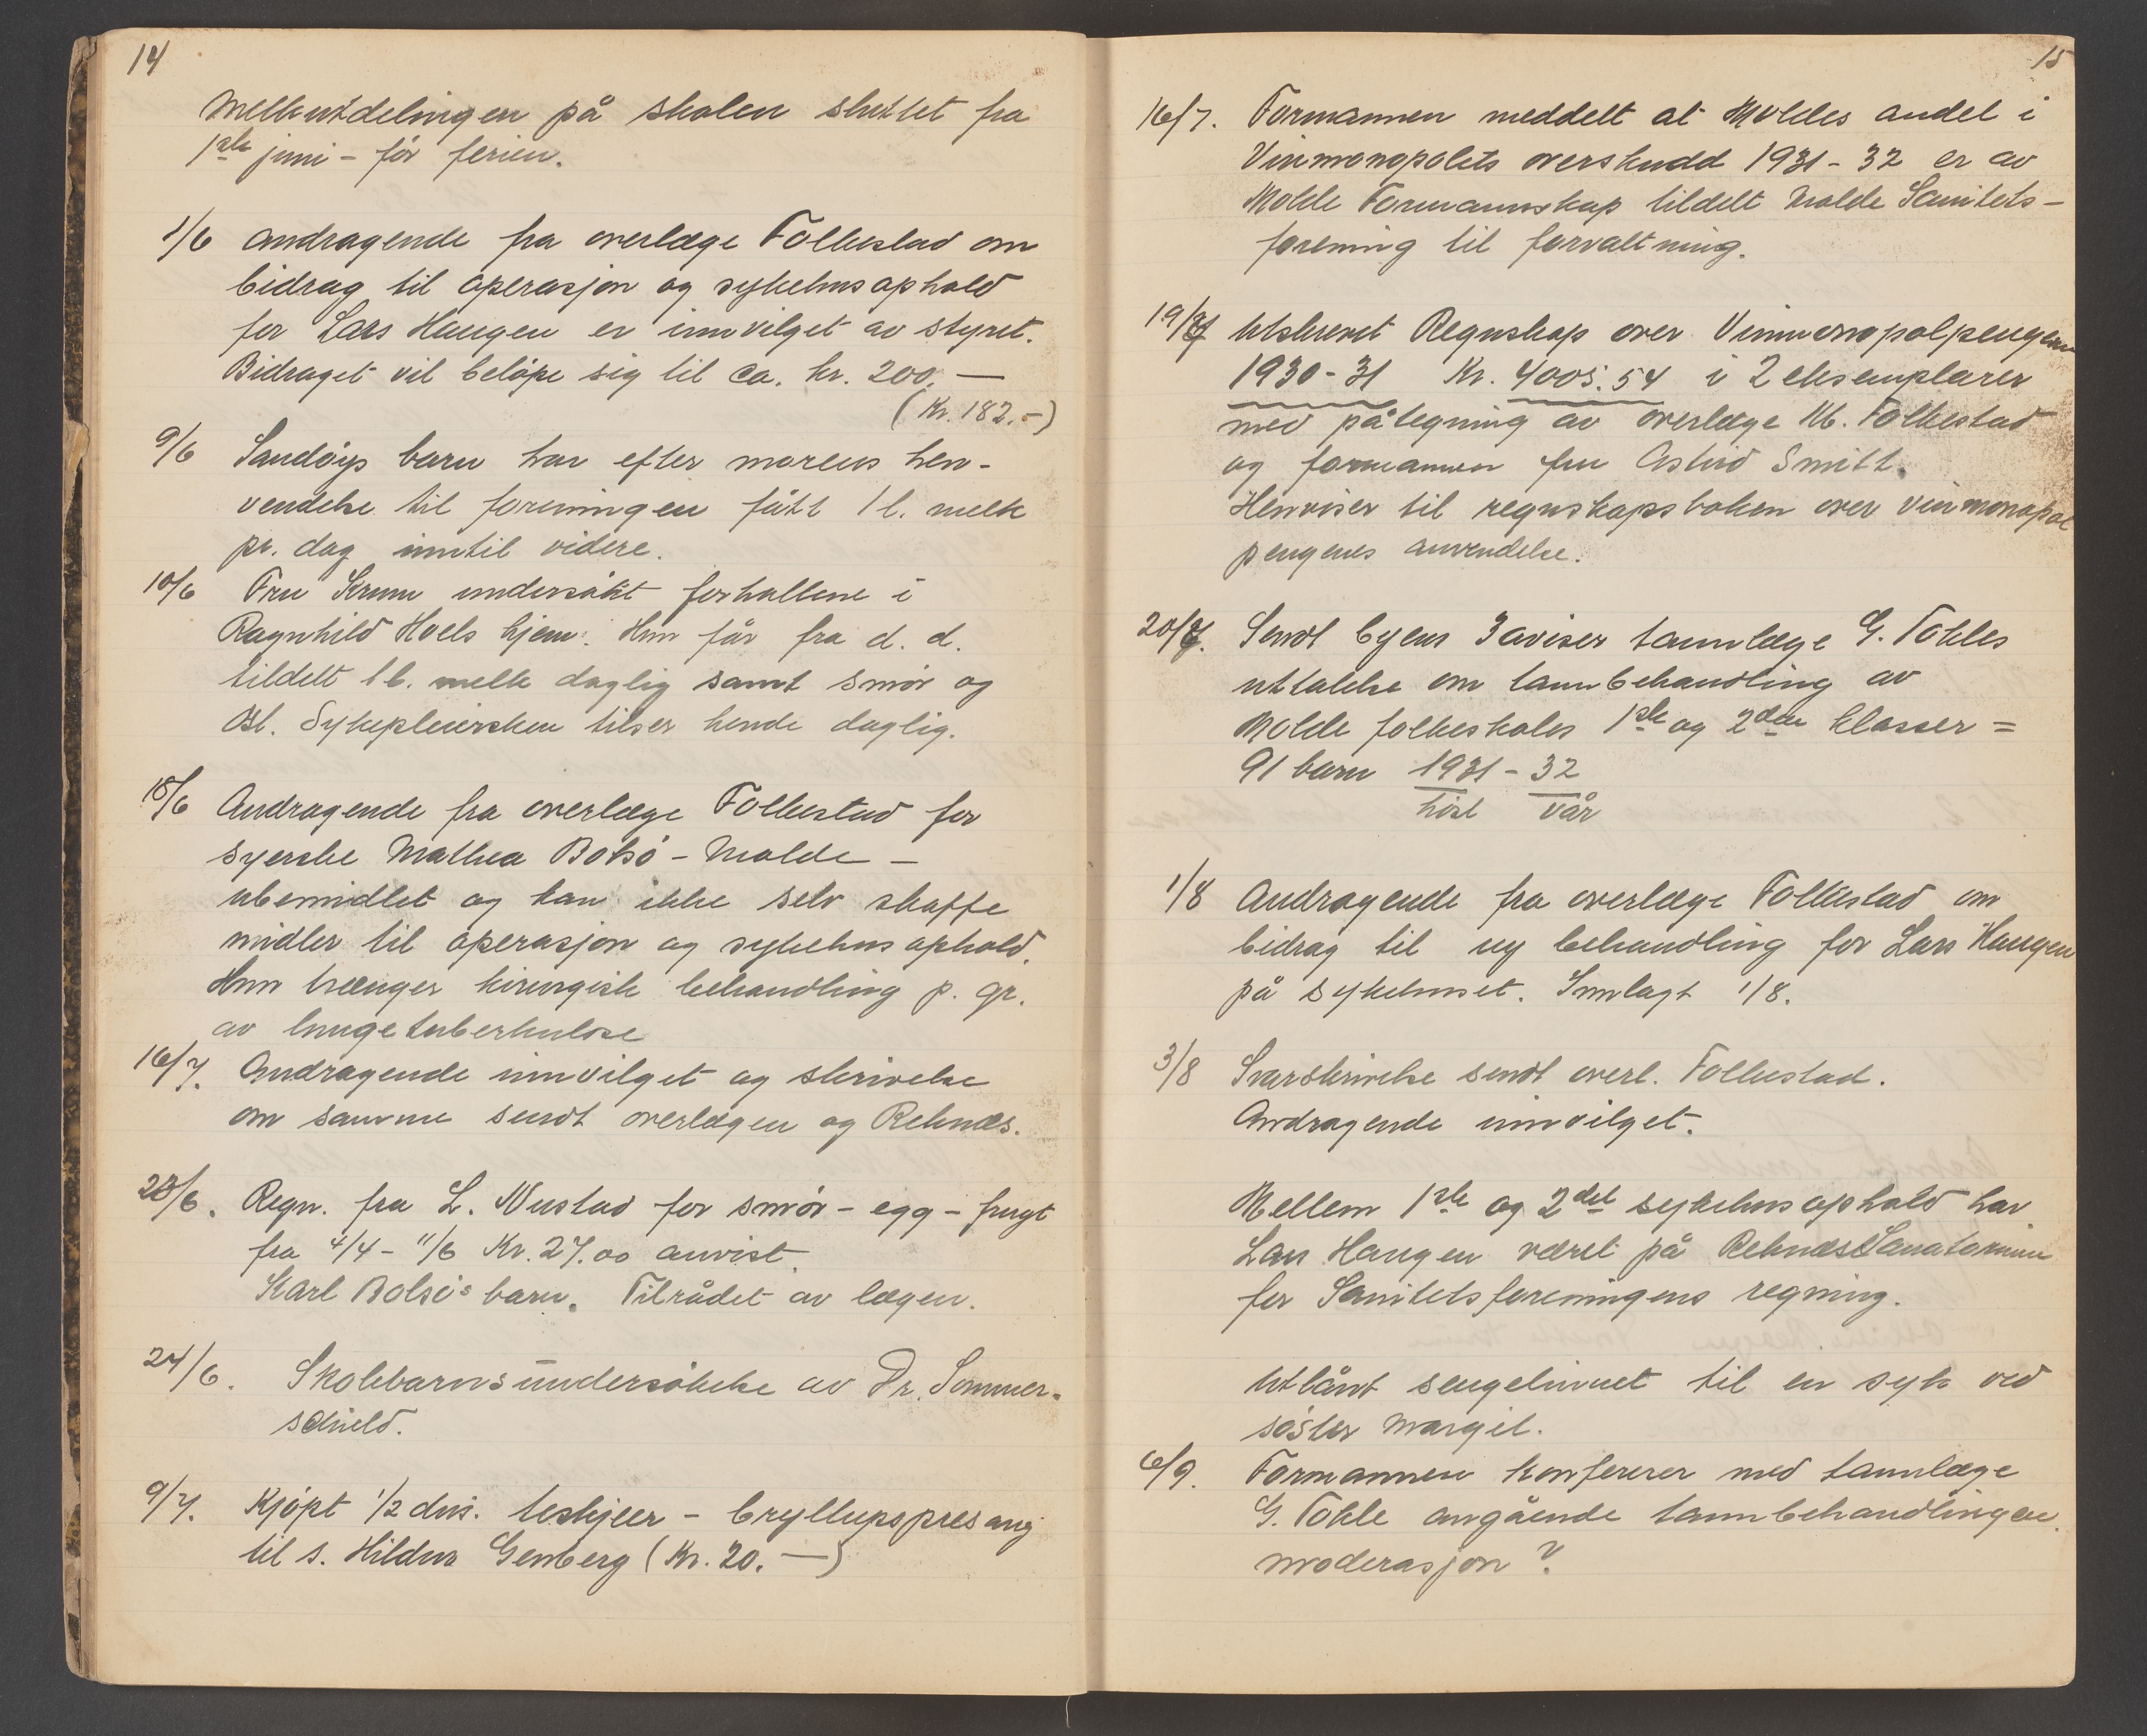 14
Melkutdelingen på skolen sluttet fra
1ste juni - før ferien.
1/6 Andragende fra overlæge Folkestad om
bidrag til operasjon og sykehusophold
for Lars Haugen er innvilget av styret.
Bidraget vil beløpe sig til ca. kr. 200.—
(Kr. 182.-)
9/6 Sandøys barn har efter morens hen-
vendelse til foreningen fått 1 l. melk
pr. dag inntil videre.
10/6 Fru Krum undersøkt forholdene i
Ragnhild Hoels hjem. Hun får fra d. d.
tildelt 1 l. melk daglig samt smør og
ost. Sykepleiersken tilser hende daglig.
15/6 Andragende fra overlæge Folkestad for
syerske Mathea Bolsø - Molde -
ubemidlet og kan ikke selv skaffe
midler til operasjon og sykehusophold.
Hun trænger kirurgisk behandling p. gr.
av lungetuberkulose
16/7. Andragende innvilget og skrivelse
om samme sendt overlægen og Reknes.
23/6. Regn. fra L. Nustad for smør - egg - frugt
fra 4/4 - 11/6 Kr. 27.00 anvist.
Karl Bolsø's barn. Tilrådet av lægen.
24/6. Skolebarnsundersøkelse av Dr. Sommer-
schield.
9/7. Kjøpt 1/2 dus. teskjeer - bryllupspresang
til s. Hildur Genberg (Kr. 20.—)
15
16/7. Formannen meddelt at Moldes andel i
Vinmonopolets overskudd 1931-32 er av
Molde Formannskap tildelt Molde Sanitets-
forening til forvaltning.
19/7 Utskrevet Regnskap over Vinmonopolpengene
1930-31 Kr. 4005.54 i 2 eksemplarer
med påtegning av overlæge M. Folkestad
og formannen fru Astrid Smitt.
Henviser til regnskapsboken over vinmonopol
pengenes anvendelse.
20/7. Sendt byens 3 aviser tannlæge G. Tokles
uttalelse om tannbehandling av
Molde folkeskoles 1ste og 2den klasser =
91 barn 1931 - 32
høst vår
1/8 Andragende fra overlæge Folkestad om
bidrag til ny behandling for Lars Haugen
på sykehuset. Innlagt 1/8.
3/8 Svarskrivelse sendt overl. Folkestad.
Andragende innvilget.
Mellem 1ste og 2det sykehusophold har
Lars Haugen været på Reknes Sanatorium
for Sanitetsforeningens regning.
Utlånt sengelinnet til en syk ved
søster Margit.
6/9. Formannen konfererer med tannlæge
G. Tokle angående tannbehandlingen.
moderasjon?